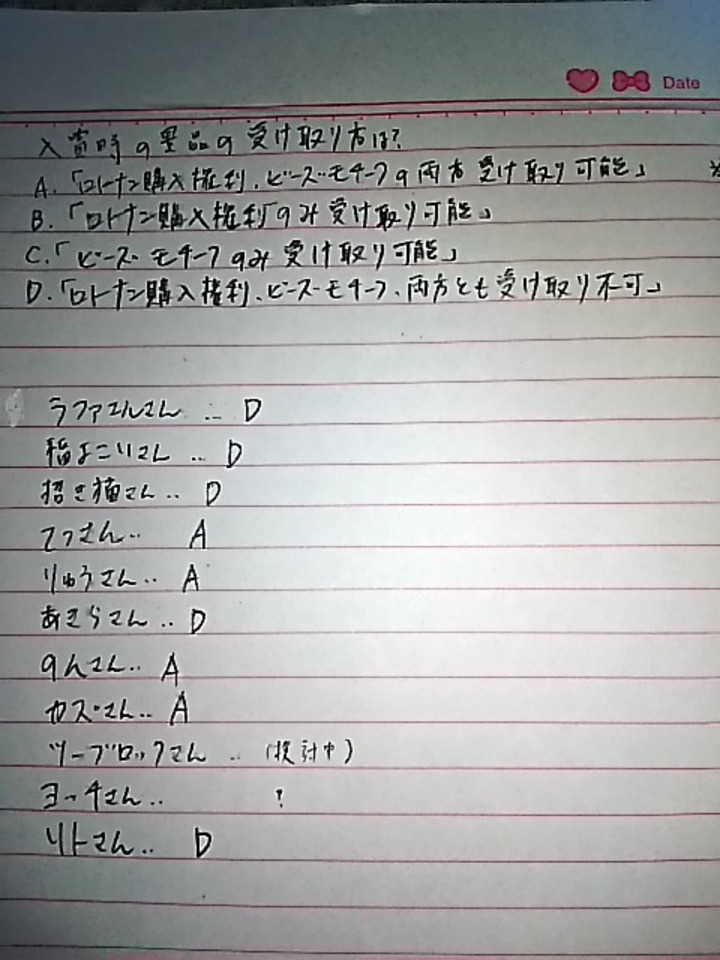 Date
入賞時の景品の受け取り方は?
A.「ロトナン購入権利、ビーズ・モチーフの両方受け取り可能」 ※
B.「ロトナン購入権利」のみ受け取り可能」
C.「ビーズ・モチーフのみ受け取り可能」
D.「ロトナン購入権利、ビーズ・モチーフ、両方とも受け取り不可」
ラファエルさん … D
福よこいさん … D
招き猫さん.. D
てつさん.. A
りゅうさん.. A
あきらさん.. D
のんさん.. A
カズさん.. A
ツーブロックさん .. (検討中)
ヨッチさん.. ?
リトさん.. D